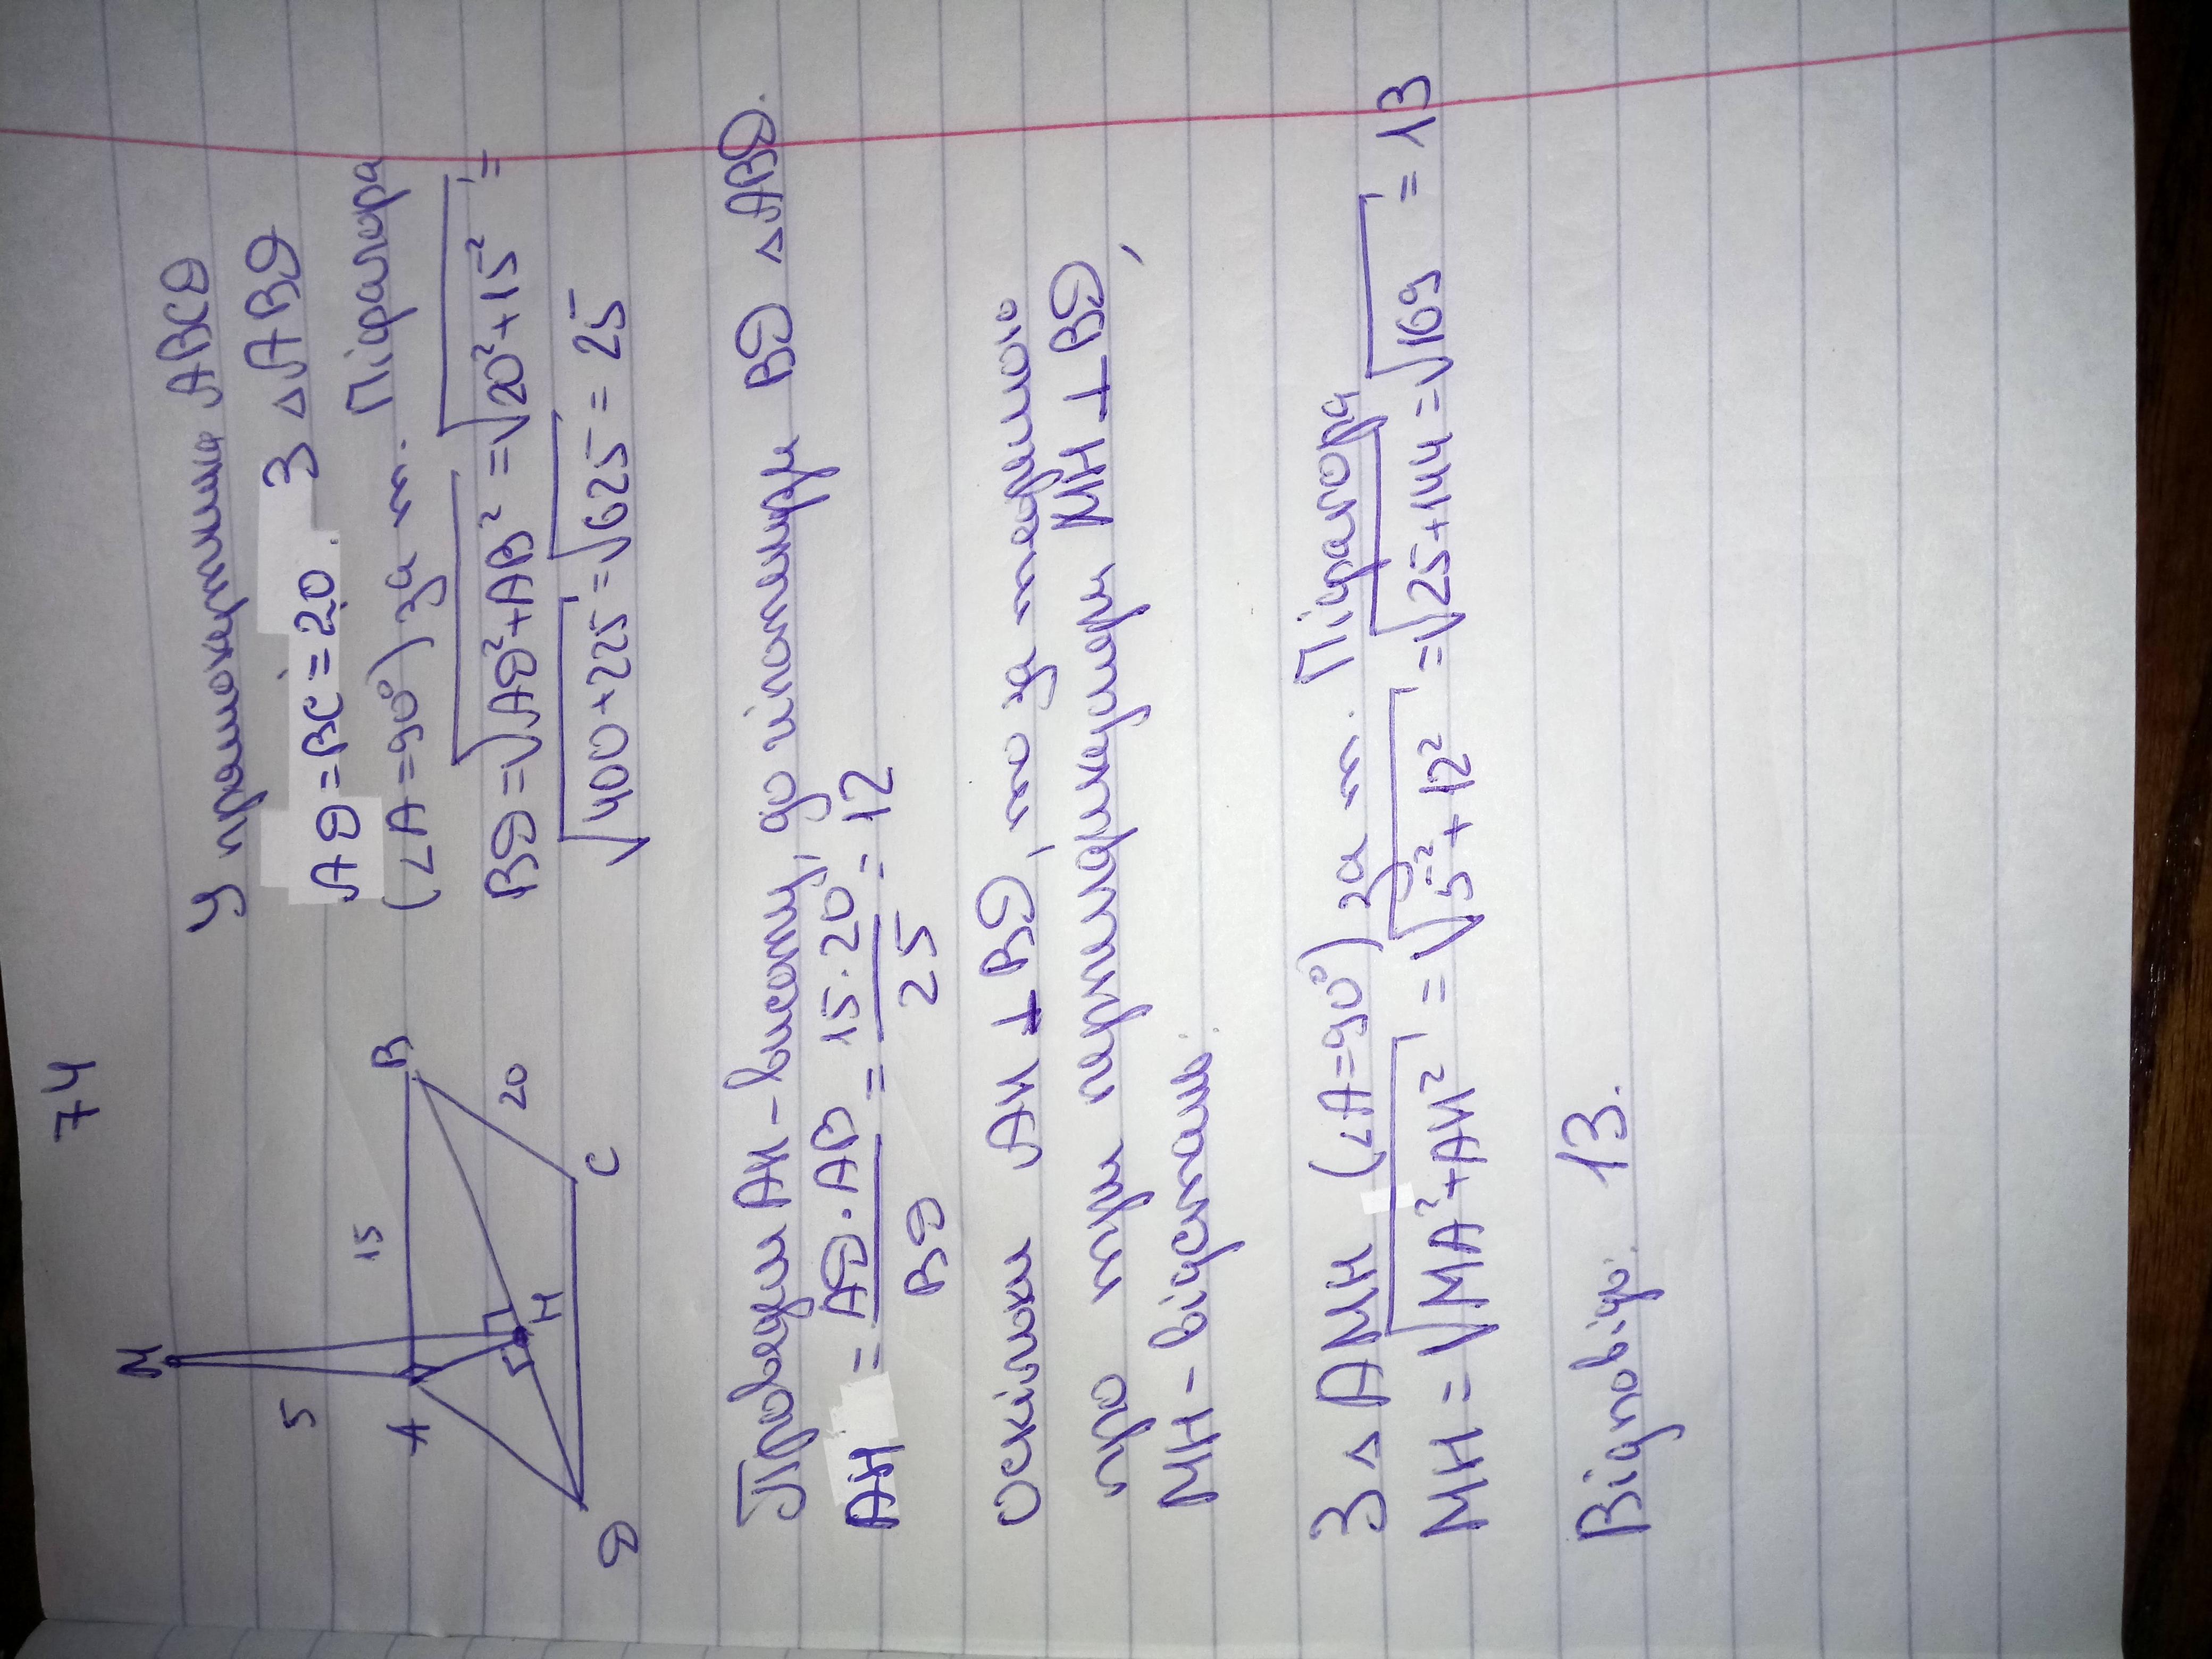 74
М
5
А
15
В
20
Н
С
D
У прямокутнику ABCD
AD = BC = 20. З △ABD
(∠A = 90°) за т. Піфагора
BD = √AD² + AB² = √20² + 15² =
√400 + 225 = √625 = 25
Проведем AH - висоту, до гіпотенузи BD △ABD.
AH = AD · AB / BD = 15 · 20 / 25 = 12
Оскільки AH ⊥ BD, то за теоремою
про три перпендикуляри MH ⊥ BD,
MH - відстань.
З △ AMH (∠A = 90°) за т. Піфагора
MH = √MA² + AH² = √5² + 12² = √25 + 144 = √169 = 13
Відповідь: 13.